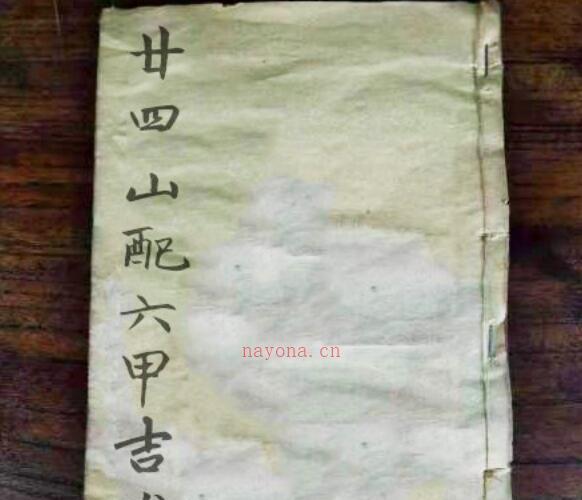 廿四山配六甲吉
nayona.cn